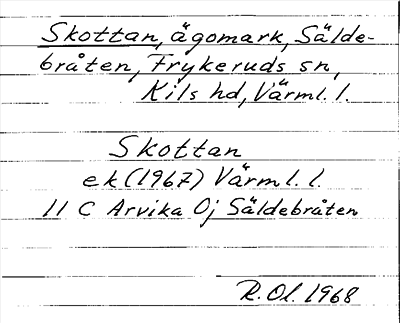 Skottan, ägomark, Sälde-
bråten, Frykeruds sn,
Kils hd, Värml. l.
Skottan
ek (1967) Värml. l.
11 C Arvika Oj Säldebråten
R. Ol. 1968